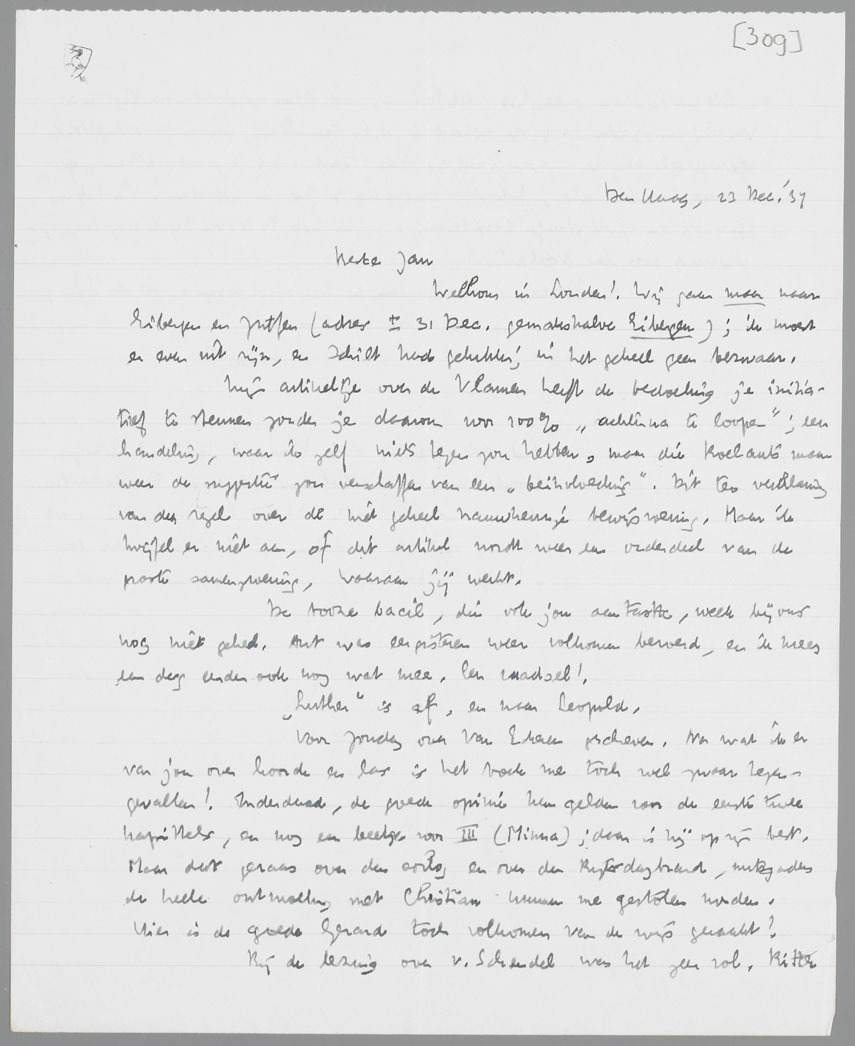 [309]
Den Haag, 23 Dec. '37
Beste Jan
Welkom in Londen! Wij gaan maar naar
Eibergen en Zutfen (adres ± 31 Dec. gemakshalve Eibergen); ik moest
er even uit zijn, en Schilt had gelukkig in het geheel geen bezwaar.
Mijn artikeltje over de Vlamen heeft de bedoeling je initia-
tief te steunen zonder je daarom voor 100% „achterna te loopen"; een
handeling, waar ik zelf niets tegen zou hebben, maar die Roelants maar
weer de suggestie zou verschaffen van een „beïnvloeding". Dit ter verklaring
van den regel over de niet geheel nauwkeurige bewijsvoering. Maar ik
twijfel er niet aan, of dit artikel wordt weer een onderdeel van de
groote samenzwering, waaraan jij werkt.
De booze bacil, die ook jou aantastte, week bij ons
nog niet geheel. Ant was eergisteren weer volkomen beroerd, en ik kreeg
een dag eerder ook nog wat mee. Een raadsel!
„Luther" is af, en naar Leopold.
Voor Zondag over Van Eckeren geschreven. Na wat ik er
van jou over hoorde en las is het boek me toch wel zwaar tegen-
gevallen! Inderdaad, de goede opinie kan gelden voor de eerste twee
kapittels, en nog een beetje voor III (Minna); daar is hij op zijn best.
Maar dat geraas over den oorlog en over den Rijksdagbrand, mitsgaders
de heele ontmoeting met Christian kunnen me gestolen worden.
Hier is de goede Gerard toch volkomen van de wijs geraakt!
Bij de lezing over v. Schendel was het geen vol. Ritter